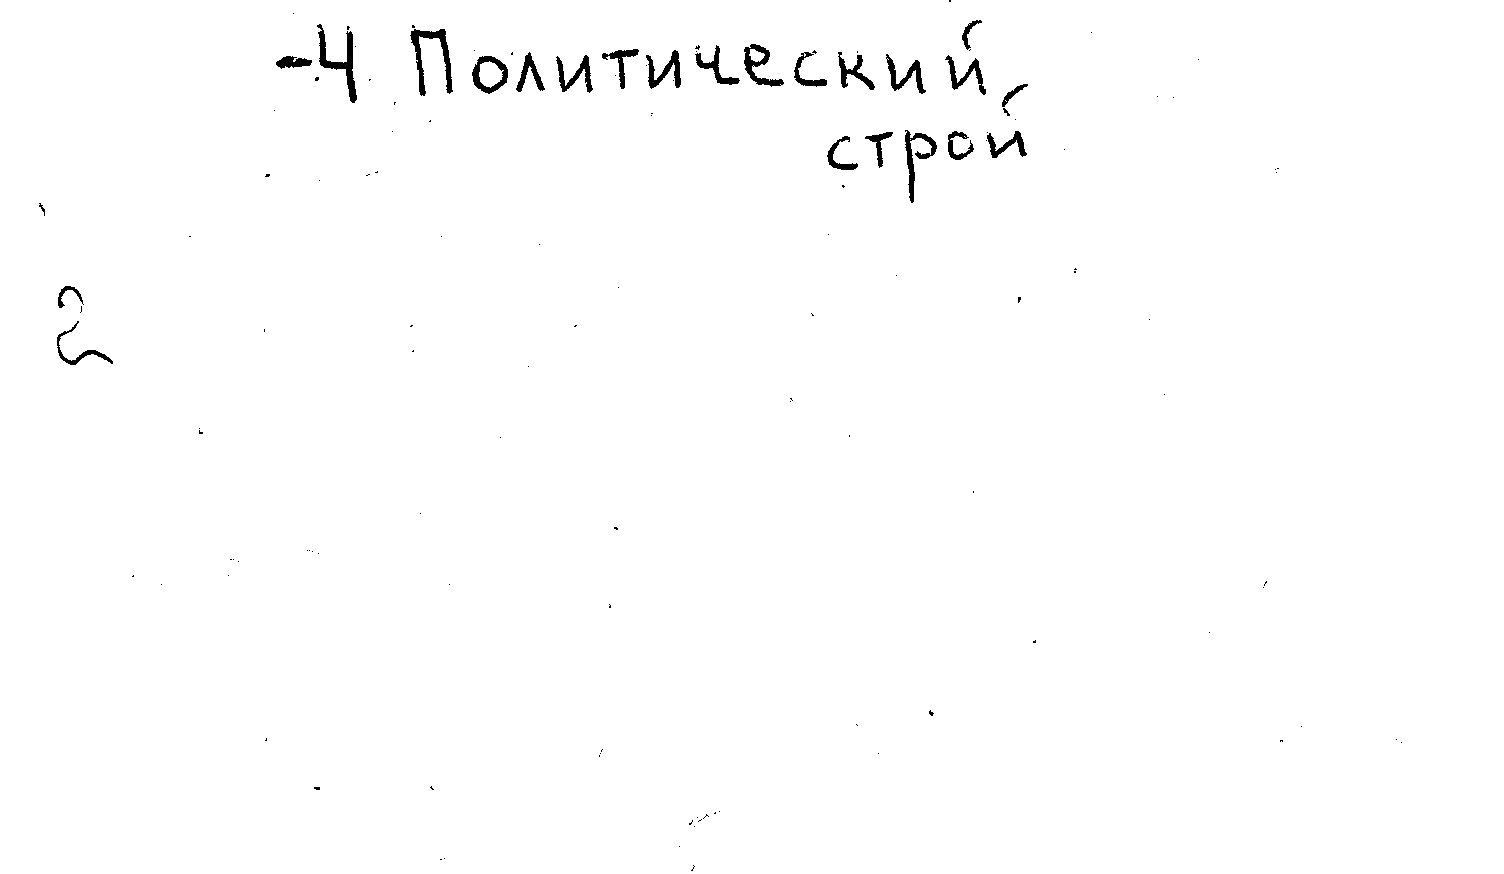 -4 Политический
строй
2